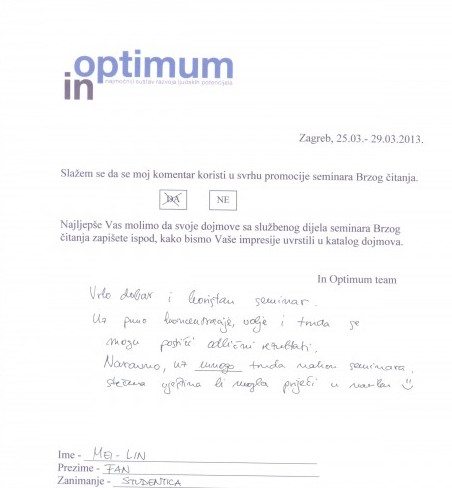 in optimum
najmoćniji sustav razvoja ljudskih potencijala
Zagreb, 25.03.- 29.03.2013.
Slažem se da se moj komentar koristi u svrhu promocije seminara Brzog čitanja.
DA NE
Najljepše Vas molimo da svoje dojmove sa službenog dijela seminara Brzog
čitanja zapišete ispod, kako bismo Vaše impresije uvrstili u katalog dojmova.
In Optimum team
Vrlo dobar i koristan seminar.
Uz puno koncentracije, volje i truda se
mogu postići odlični rezultati.
Naravno, uz mnogo truda nakon seminara,
stečena vještina bi mogla prijeći u naviku
Ime - MEI-LIN
Prezime - FAN
Zanimanje - STUDENTICA